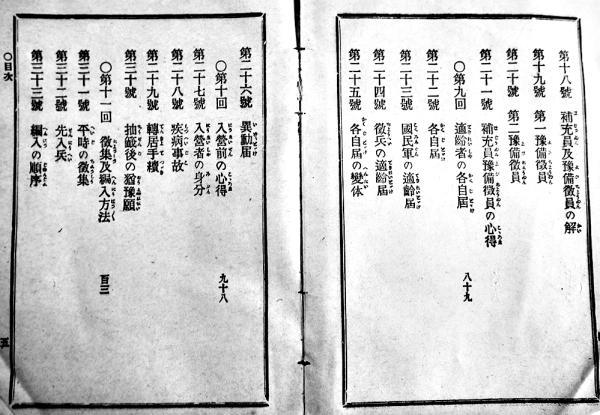 第十八號 補充員及豫備徴員の解
第十九號 第一豫備徴員
第二十號 第二豫備徴員
第二十一號 補充員豫備徴員の心得
〇第九回 適齢者の各自屆 八十九
第二十二號 各自屆
第二十三號 國民軍の適齡屆
第二十四號 徴兵の適齡屆
第二十五號 各自屆の變体
第二十六號 異動屆
〇第十回 入營前の心得 九十八
第二十七號 入營者の身分
第二十八號 疾病事故
第二十九號 轉居手續
第三十號 抽籤後の猶豫願
〇第十一回 徴集及編入方法 百三
第三十一號 平時の徴集
第三十二號 先入兵
第三十三號 編入の順序
〇目次
五